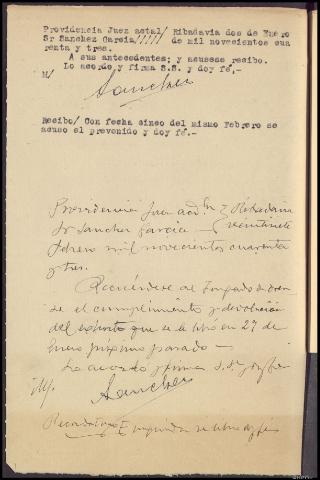 Providencia Juez actal/ Ribadavia dos de Enero
Sr Sanchez Garcia///// de mil novecientos cua
renta y tres.
A sus antecedentes; y acusese recibo.
Lo acordo y firma S.S. y doy fé.-
M/
Sanchez
Recibo/ Con fecha cinco del mismo Febrero se
acuso el prevenido y doy fé.-
Providencia Juez Ribadavia
Sr Sanchez Garcia veintisiete
Febrero mil novecientos cuarenta
y tres.
Recuérdese al Juzgado de Oren
se el cumplimiento y devolución
del exhorto que se le libró en 27 de
Enero próximo pasado —
Lo acordo y firma S.Sª doy fe
M/.
Sanchez